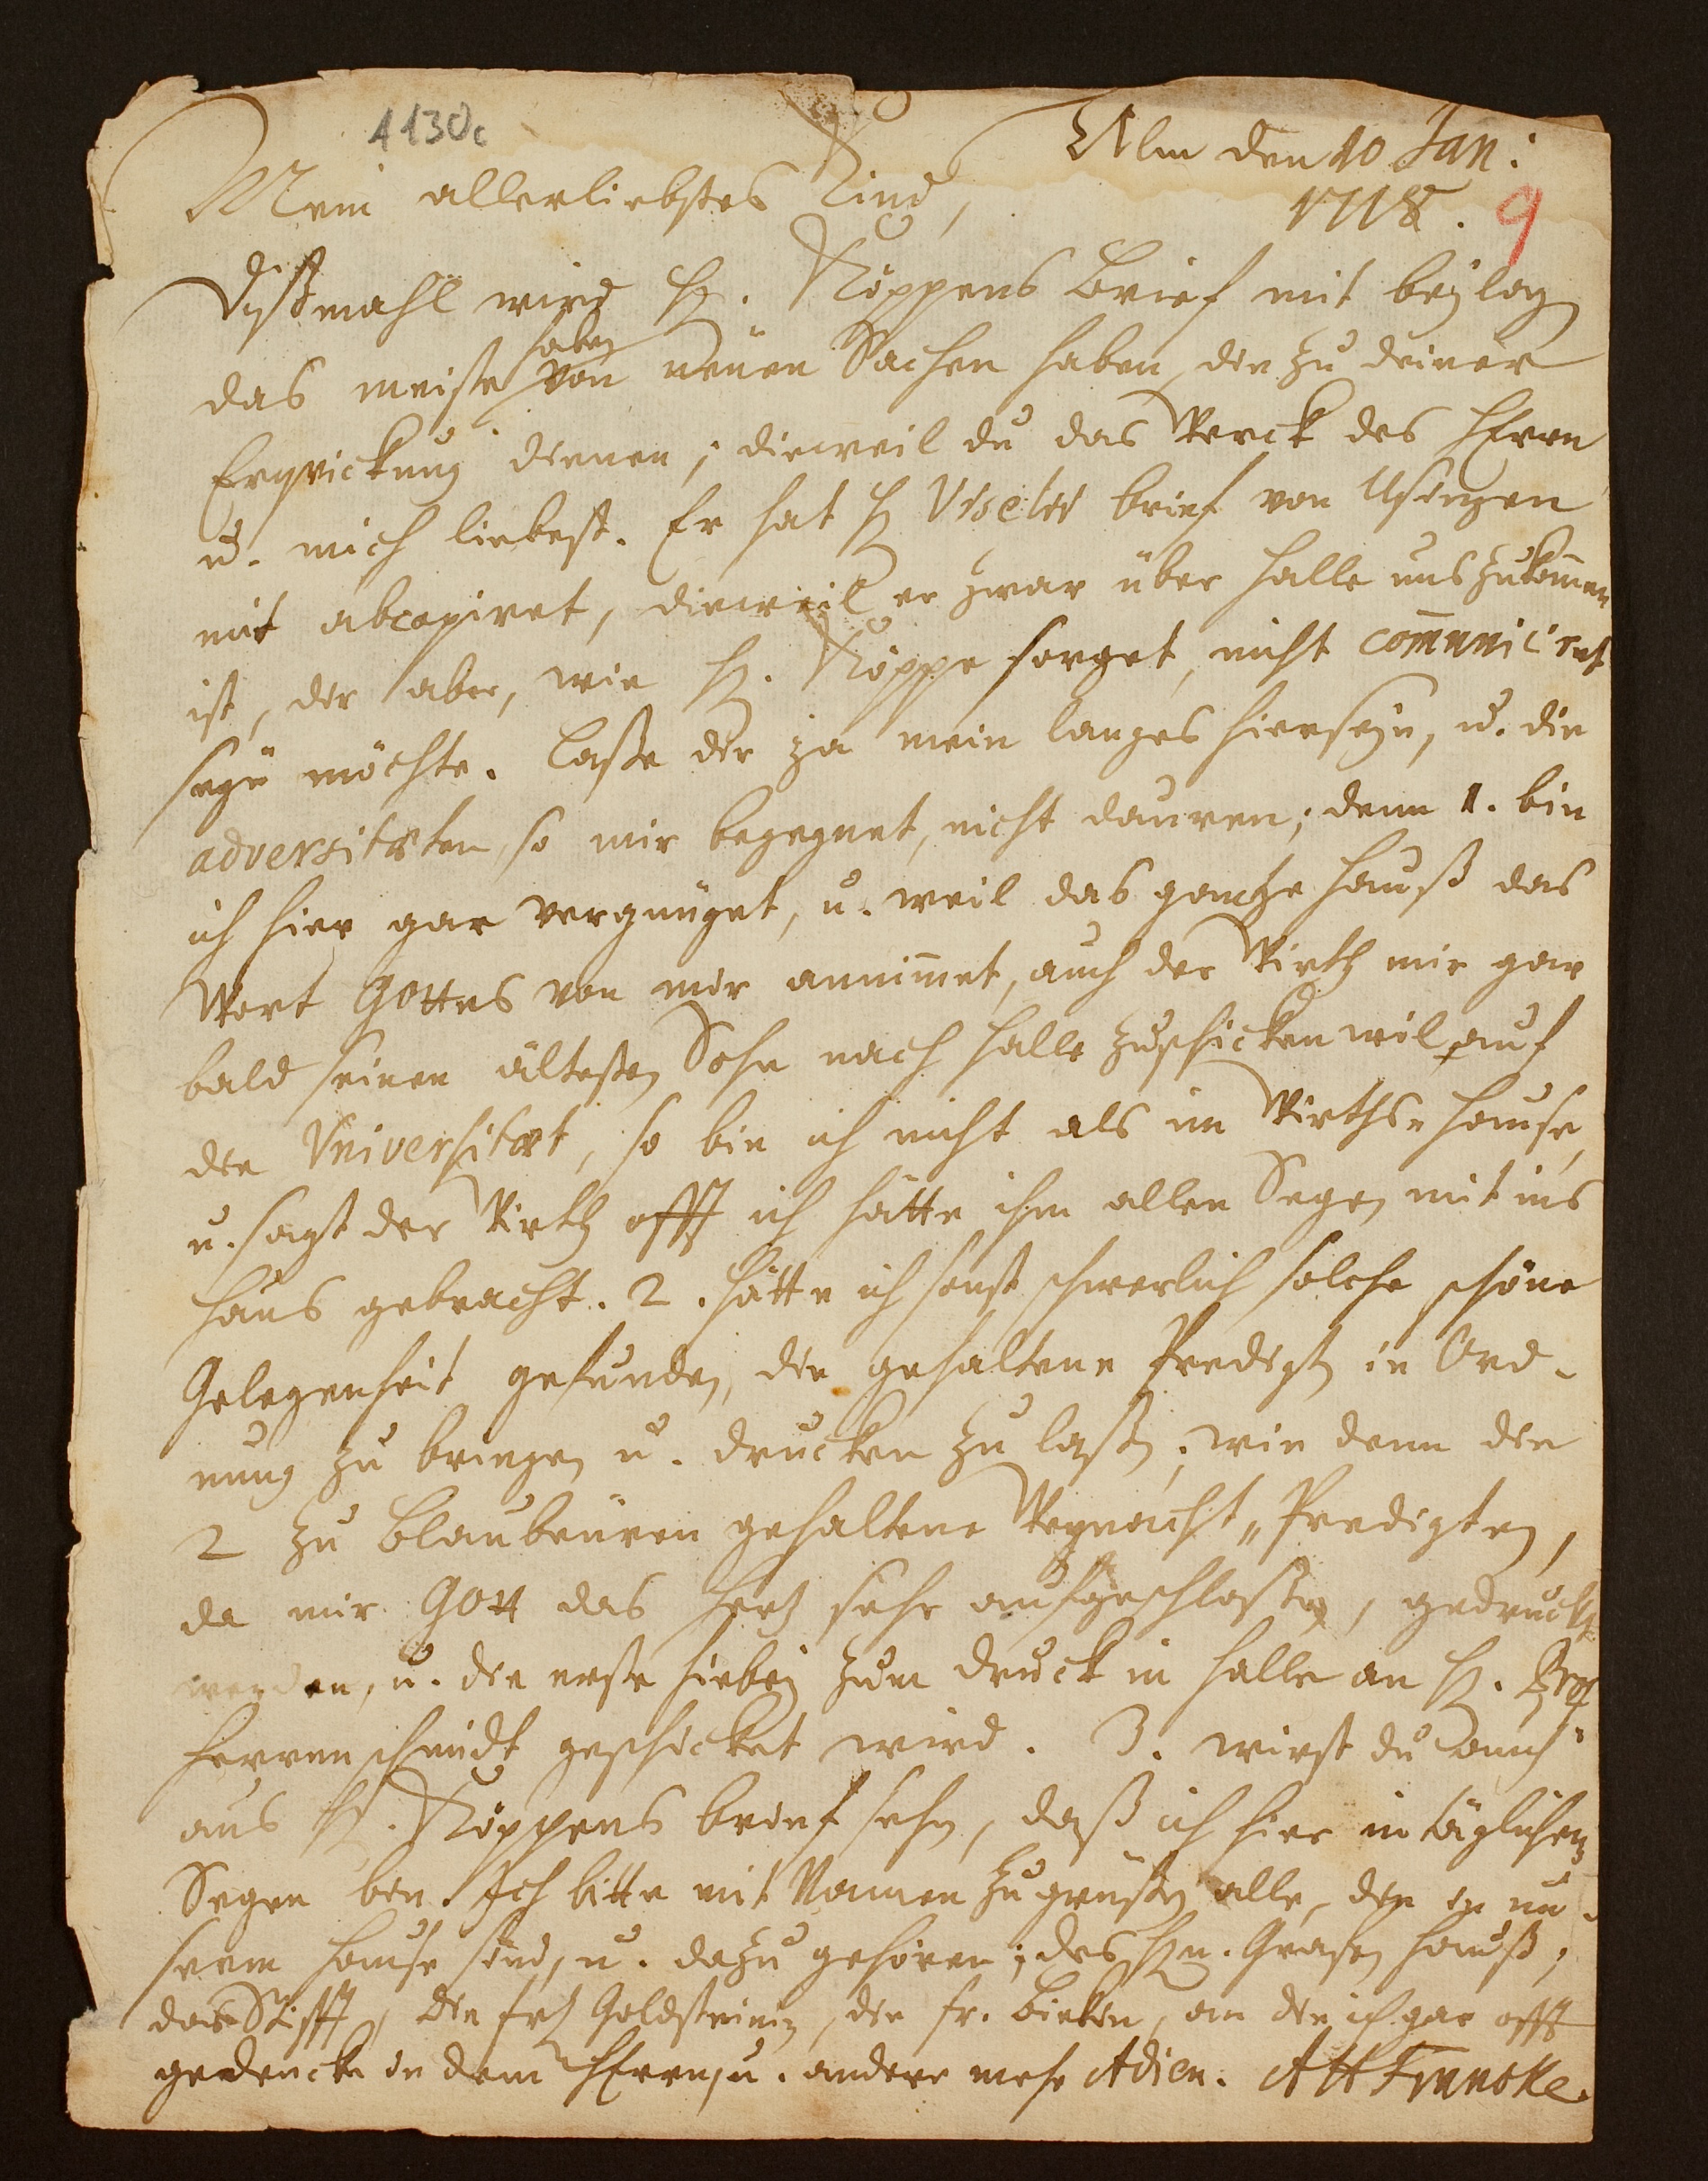 4130c
Ulm den 10 Jan:
Mein allerliebstes Kind,
1718. 9
Dißmahl wird H. Köppens Brief mit beylag
haben
das meiste von neüen Sachen haben, die zu deiner
Erqvickung dienen; dieweil du das Werck des HErrn
u. mich liebest. Er hat H brief von Usingen
mit abcopiret, dieweil er zwar über Halle uns zukom̄en
ist, dir aber, wie H. Köppe sorget, nicht com̄uniciret
seyn möchte. Laße dir ja mein langes hierseyn, u. die
adversitæten, so mir begegnet, nicht dauren; denn 1. bin
ich hier gar vergnüget, u. weil das gantze Hauß das
Wort Gottes von mir annim̄et, auch der Wirth mir gar
bald seinen ältesten Sohn nach Halle zuschicken wil auf
die Universitæt, so bin ich nicht als im Wirths-Hause,
u. sagt der Wirth offt ich hätte ihm allen Segen mit ins
Haus gebracht. 2. hätte ich sonst schwerlich solche schöne
Gelegenheit gefunden, die gehaltene Predigten in Ord-
nung zu bringen u. drucken zu laßen; wie denn die
2 zu Blaubeüren gehaltene Weynacht-Predigten,
da mir Gott das Hertz sehr aufgeschloßen, gedruckt
werden, u. die erste hiebey zum druck in Halle an H. Prof
Herrenschmidt geschicket wird. 3. wirst du auch
aus H. Köppens brief sehen, daß ich hier in täglichen
Segen bin. Ich bitte mit Namen zu grüßen alle, die in un-
serm Hause sind, u. dazu gehören; des Hn. Grafen Hauß,
das Stifft, die Goldsteinin, die Fr. an die ich gar offt
gedencke in dem HErrn, u. andere mehr Adieu. AHFrancke.